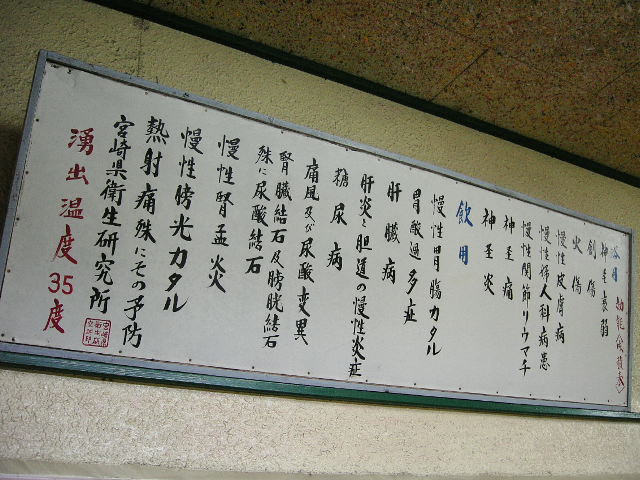 浴用
神圣衰弱
創傷
火傷
慢性皮膚病
慢性婦人科病患
慢性関節リウマチ
神圣痛
神圣炎
飲用
慢性胃腸カタル
胃酸過多症
肝臓病
肝炎と胆道の慢性炎症
糖尿病
痛風及び尿酸変異
腎臓結石及膀胱結石
殊に尿酸結石
慢性腎盂炎
慢性膀光カタル
熱射痛殊にその予防
宮崎県衛生研究所
湧出温度35度